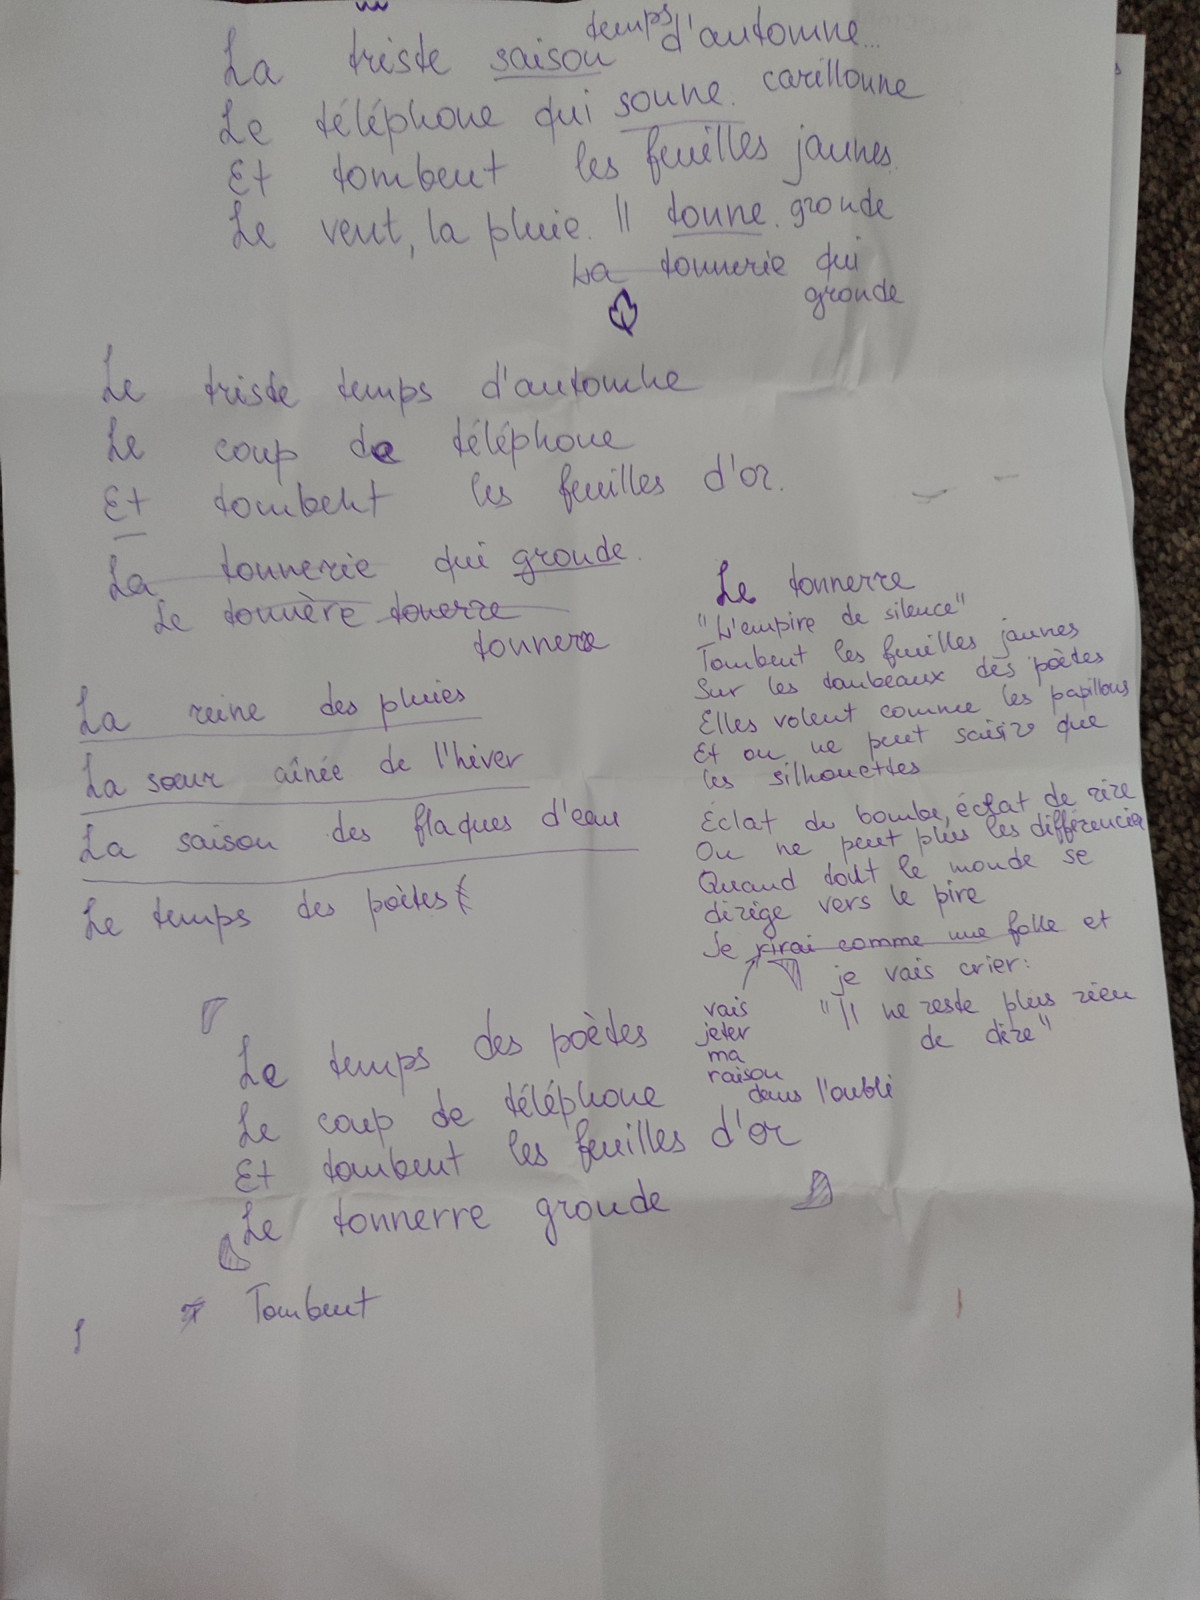 temps
La triste saison d'automne...
Le téléphone qui sonne. carillonne
Et tombent les feuilles jaunes.
Le vent, la pluie. Il tonne. gronde
La tonnerie qui
gronde
Le triste temps d'automne
Le coup de téléphone
Et tombent les feuilles d'or.
La tonnerie qui gronde.
Le tonnère tonerre
tonnerre
La reine des pluies
La sœur aînée de l'hiver
La saison des flaques d'eau
Le temps des poètes
Le tonnerre
"L'empire de silence"
Tombent les feuilles jaunes
Sur les tombeaux des poètes
Elles volent comme les papillons
Et on ne peut saisir que
les silhouettes
Éclat du bombe, éclat de rire
On ne peut plus les différencier
Quand tout le monde se
dirige vers le pire
Je rirai comme une folle et
je vais crier:
"Il ne reste plus rien
de dire"
vais
jeter
ma
raison
dans l'oubli
Le temps des poètes
Le coup de téléphone
Et tombent les feuilles d'or
Le tonnerre gronde
Tombent